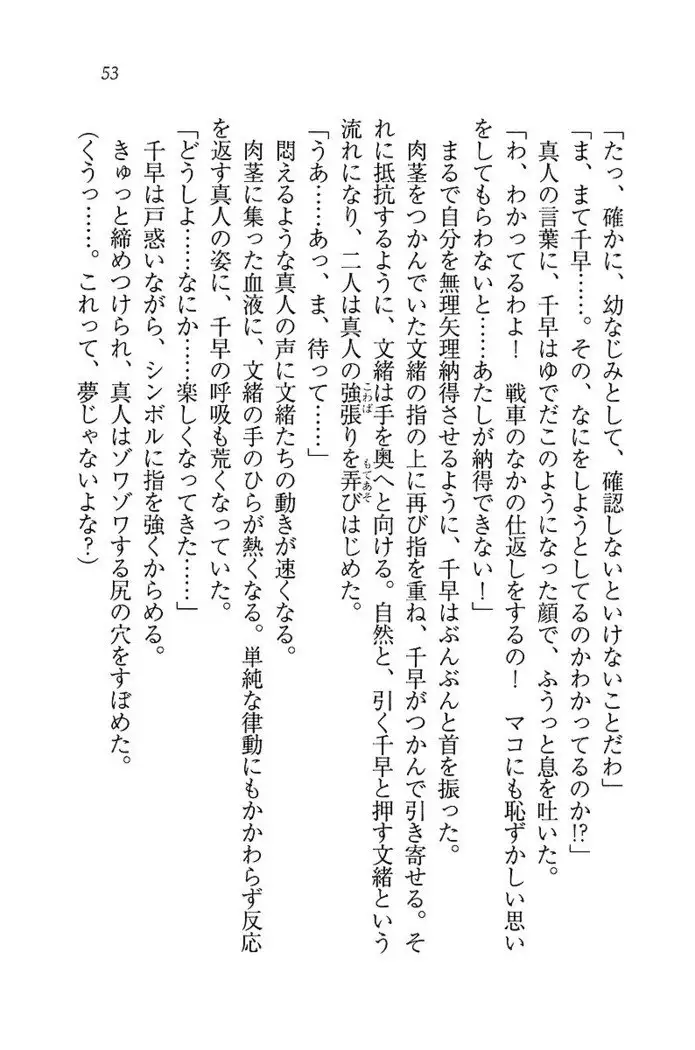 53
「たっ、確かに、幼なじみとして、確認しないといけないことだわ」
「ま、まて千早……。その、なにをしようとしてるのかわかってるのか!?」
真人の言葉に、千早はゆでだこのようになった顔で、ふうっと息を吐いた。
「わ、わかってるわよ！　戦車のなかの仕返しをするの！　マコにも恥ずかしい思い
をしてもらわないと……あたしが納得できない！」
まるで自分を無理矢理納得させるように、千早はぶんぶんと首を振った。
肉茎をつかんでいた文緒の指の上に再び指を重ね、千早がつかんで引き寄せる。そ
れに抵抗するように、文緒は手を奥へと向ける。自然と、引く千早と押す文緒という
流れになり、二人は真人の強張りを弄びはじめた。
こわば
もてあそ
「うあ……あっ、ま、待って……」
悶えるような真人の声に文緒たちの動きが速くなる。
肉茎に集った血液に、文緒の手のひらが熱くなる。単純な律動にもかかわらず反応
を返す真人の姿に、千早の呼吸も荒くなっていた。
「どうしよ……なにか……楽しくなってきた……」
千早は戸惑いながら、シンボルに指を強くからめる。
きゅっと締めつけられ、真人はゾワゾワする尻の穴をすぼめた。
（くうっ……。これって、夢じゃないよな？）